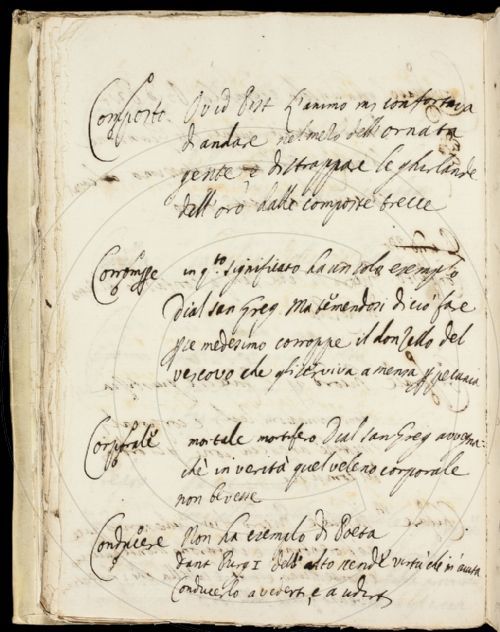 Composto Ovid Pist L'animo mi confortava
di andare nel mezo dell'ornata
gente e distrappar le ghirlande
dell'oro dalle composte trecce
Corrompe in q.to significato ha un solo esempio
Dial san Greg Ma temendosi di ciò fare
p se medesimo corroppe il donzello del
vescovo che gli serviva a mensa p pecunia
Corporale mortale mortifero Dial san Greg avvegna
che in verità quel veleno corporale
non bevesse
Conducere Non ha esemplo di Poeta
Dant Purg I dell'alto scende virtù che m'aiuta
Conducerlo a vederti, e a udirti